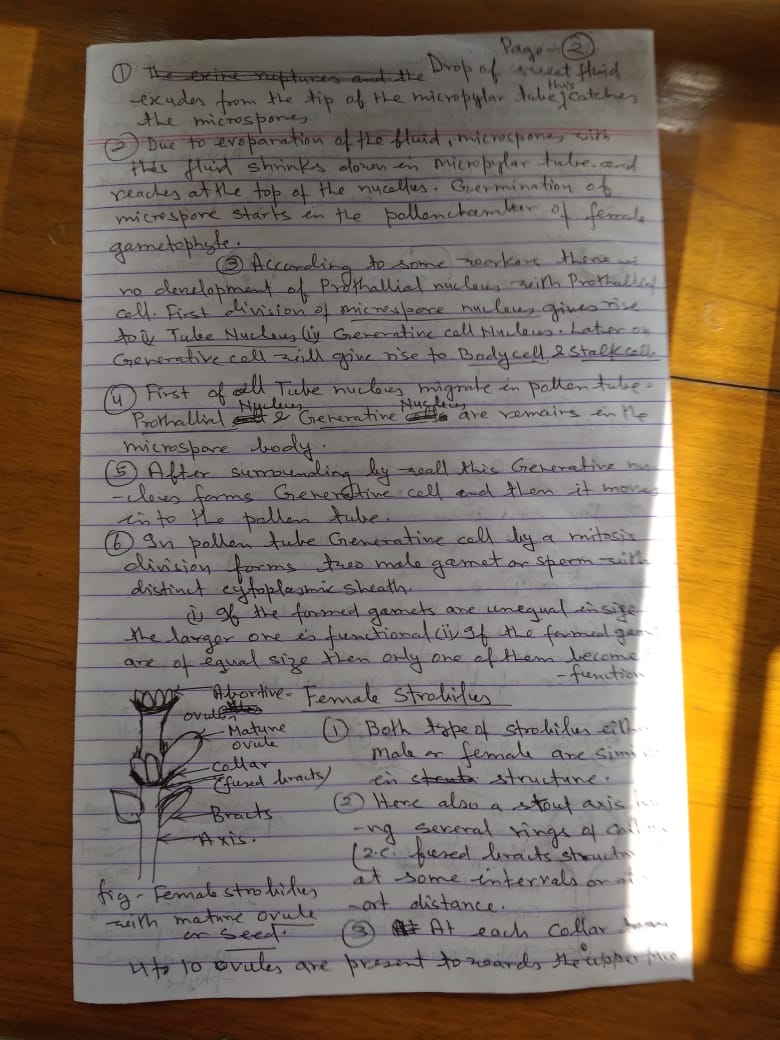 Page - 2
① The exine ruptures and the Drop of sweet fluid
exudes from the tip of the micropylar tube, this catches
the microspores
② Due to evoparation of the fluid, microspores with
this fluid shrinks down in micropylar tube and
reaches at the top of the nucellus. Germination of
microspore starts in the pollenchamber of female
gametophyte.
③ According to some workers there is
no development of Prothallial nucleus with Prothallial
cell. First division of microspore nucleus gives rise
to i) Tube Nucleus (ii) Generative cell Nucleus. Later on
Generative cell will give rise to Bodycell & Stalkcell.
④ First of all Tube nucleus migrate in pollen tube.
Prothallial Nucleus & Generative Nucleus are remains in the
microspore body.
⑤ After surrounding by wall this Generative nu
-cleus forms Generative cell and then it moves
into the pollen tube.
⑥ In pollen tube Generative cell by a mitosis
division forms two male gamet or sperm with
distinct cytoplasmic sheath.
i) If the formed gamets are unequal in size
the larger one is functional (ii) If the formed gam
are of equal size then only one of them become
- function
Abortive-
ovules
Mature
ovule
collar
(fused bracts)
Bracts
Axis.
fig - Female strobilus
with mature ovule
or seed.
Female Strobilus
① Both type of strobilus eith
male or female are simi
in structure.
② Here also a stout axis
-ng several rings of coll
(i.e. fused bracts structu
at some intervals or
-ort distance.
③ At each collar
4 to 10 ovules are present towards the upper face